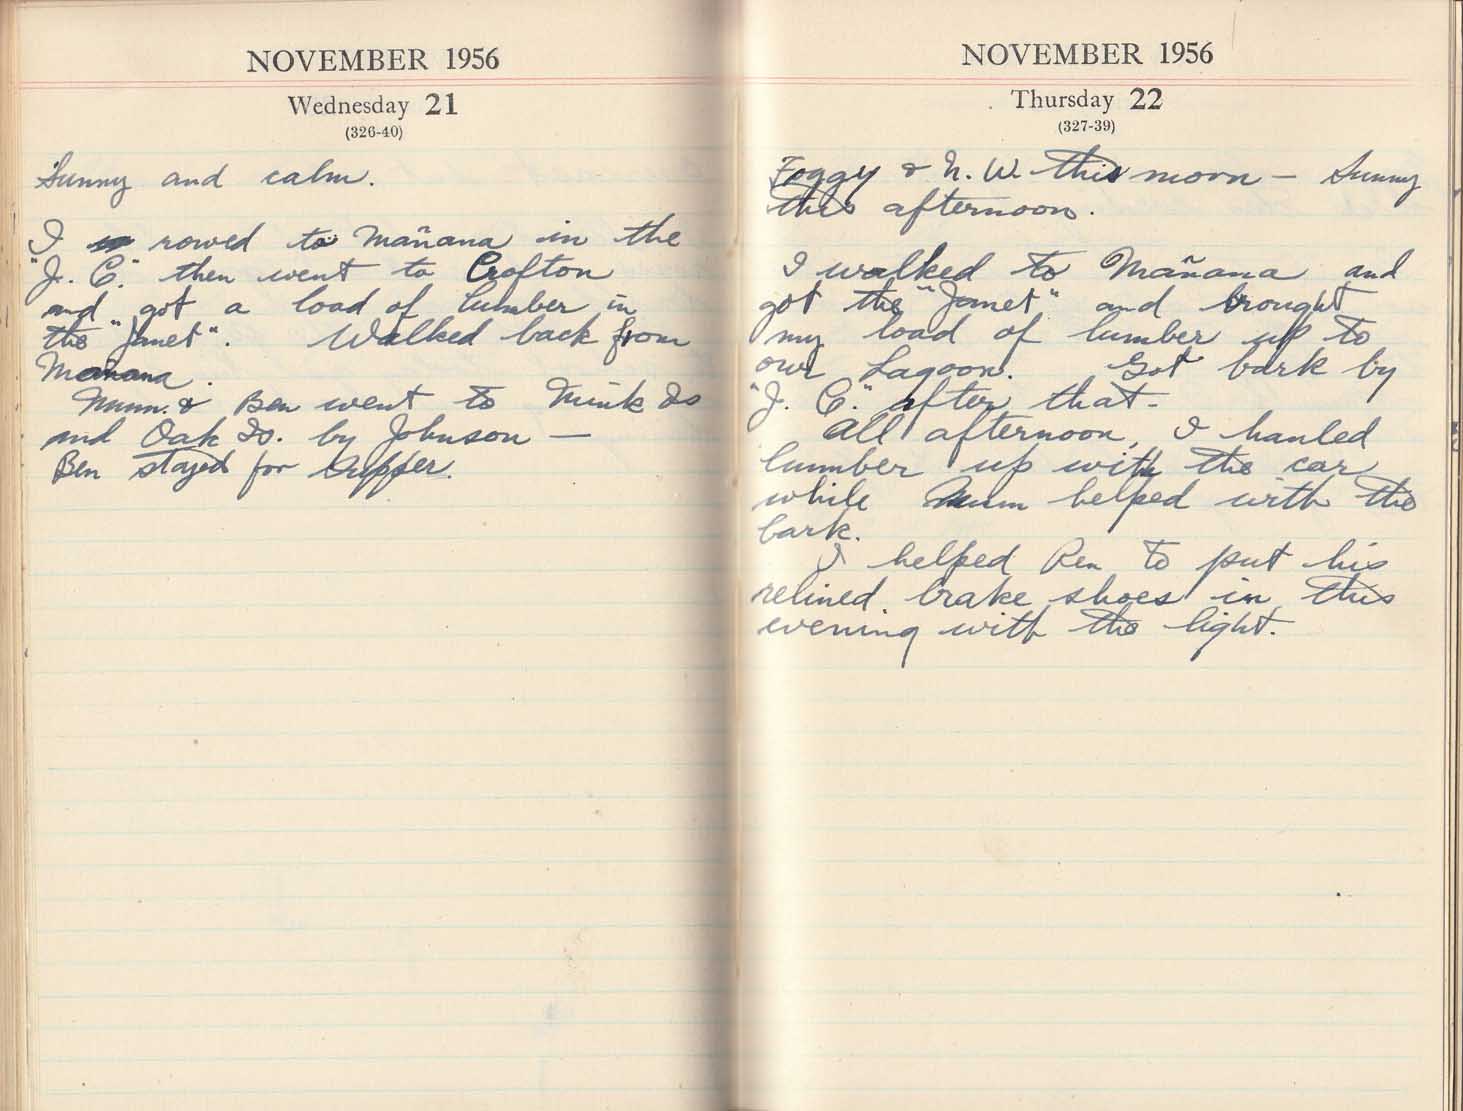 NOVEMBER 1956
Wednesday 21
(326-40)
Sunny and calm.
I rowed to Mañana in the
"J. C." then went to Crofton
and got a load of lumber in
the "Janet". Walked back from
Mañana.
Mum. & Ben went to Mink Is
and Oak Is. by Johnson —
Ben stayed for supper.
NOVEMBER 1956
Thursday 22
(327-39)
Foggy & N. W. this morn — Sunny
this afternoon.
I walked to Mañana and
got the "Janet" and brought
my load of lumber up to
our Lagoon. Got bark by
"J. C." after that —
All afternoon, I hauled
lumber up with the car
while Mum helped with the
bark.
I helped Ben to put his
relined brake shoes in this
evening with the light.